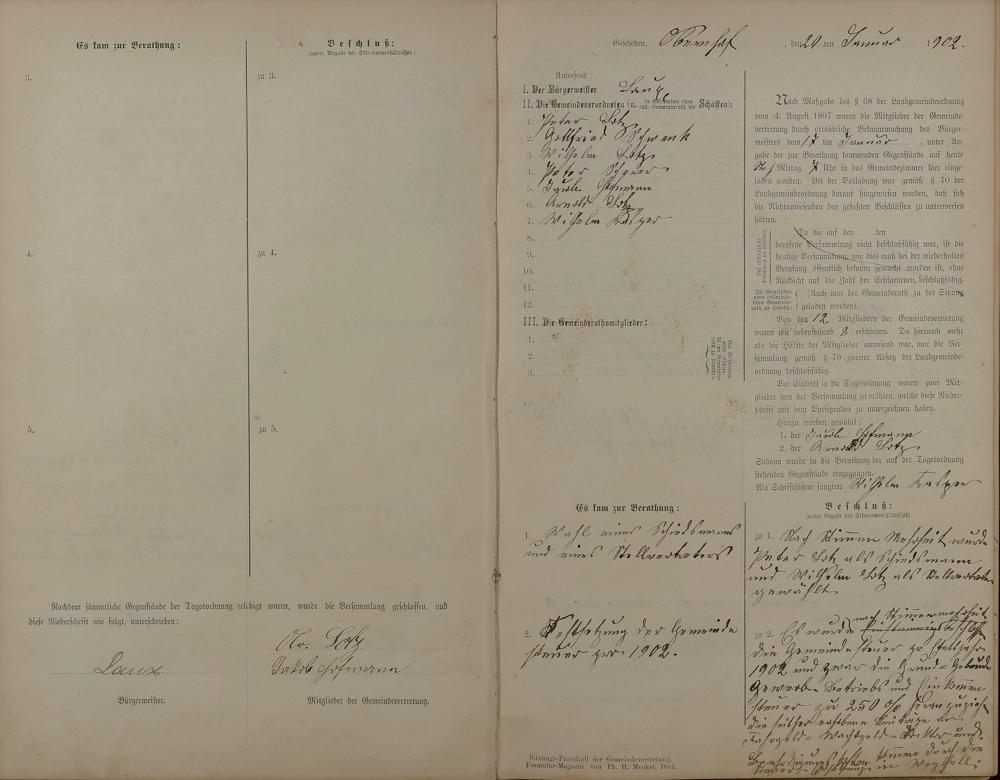 Es kam zur Berathung:
Beschluß:
(unter Angabe des Stimmenverhältnisses.)
3.
zu 3.
4.
zu 4.
5.
zu 5.
Nachdem sämmtliche Gegenstände der Tagesordnung erledigt waren, wurde die Versammlung geschlossen, und
diese Niederschrift wie folgt, unterschrieben:
Ar. Lotz
Laux
Jakob Hofmann
Bürgermeister.
Mitglieder der Gemeindevertretung.
Geschehen, Obernhof, den 20 ten Januar 1902.
Anwesend:
I. Der Bürgermeister Laux
II. Die Gemeindeverordneten (u. in Gemeinden ohne coll. Gemeinderath die Schöffen):
1. Peter Lotz
2. Gottfried Schwenk
3. Wilhelm Lotz
4. Peter
5. Jakob Hofmann
6. Arnold Lotz
7. Wilhelm Kasper
8.
9.
10.
11.
12.
III. Die Gemeinderathsmitglieder:
1.
2.
3.
Nach Maßgabe des § 68 der Landgemeindeordnung
vom 4. August 1897 waren die Mitglieder der Gemeinde-
vertretung durch ortsübliche Bekanntmachung des Bürger-
meisters vom 17 ten Januar, unter An-
gabe der zur Berathung kommenden Gegenstände auf heute
Nach Mittag 7 Uhr in das Gemeindezimmer hier einge-
laden worden. Bei der Vorladung war gemäß § 70 der
Landgemeindeordnung darauf hingewiesen worden, daß sich
die Nichtanwesenden den gefaßten Beschlüssen zu unterwerfen
hätten.
Da die auf den ten
berufene Versammlung nicht beschlußfähig war, ist die
heutige Versammlung, wie dies auch bei der wiederholten
Berufung öffentlich bekannt gemacht worden ist, ohne
Rücksicht auf die Zahl der Erschienenen, beschlußfähig.
(Auch war der Gemeinderath zu der Sitzung
geladen worden).
Von den 12 Mitgliedern der Gemeindevertretung
waren wie nebenstehend 8 erschienen. Da hiernach mehr
als die Hälfte der Mitglieder anwesend war, war die Ver-
sammlung gemäß § 70 zweiter Absatz der Landgemeinde-
ordnung beschlußfähig.
Vor Eintritt in die Tagesordnung waren zwei Mit-
glieder von der Versammlung zu wählen, welche diese Nieder-
schrift mit dem Vorsitzenden zu unterzeichnen haben.
Hierzu wurden gewählt:
1. der Jakob Hofmann
2. der Arnold Lotz
Sodann wurde in die Berathung der auf der Tagesordnung
stehenden Gegenstände eingegangen.
Als Schriftführer fungirte Wilhelm Kasper
Es kam zur Berathung:
1. Wahl eines Schiedsmanns
und eines Stellvertreters
2. Festsetzung der Gemeinde
steuer pro 1902.
Beschluß:
(unter Angabe des Stimmenverhältnisses)
zu 1. Nach Stimmen Mehrheit wurde
Peter Lotz als Schiedsmann
und Wilhelm Lotz als Stellvertreter
gewählt.
nach Stimmenmehrheit
zu 2. Es wurde einstimmig beschlossen
die Gemeindesteuer pro
1902 und zwar die Grund- Gebäude
Gewerb- Betriebs und Einkommen
steuer zu 250 % heranzuziehen
die seither erhobene Beiträge an
Wachtgeld- und
kommen durch die
in Wegfall.
Sitzungs-Protokoll der Gemeindevertretung.
Formular-Magazin von Ph. H. Meckel, Diez.